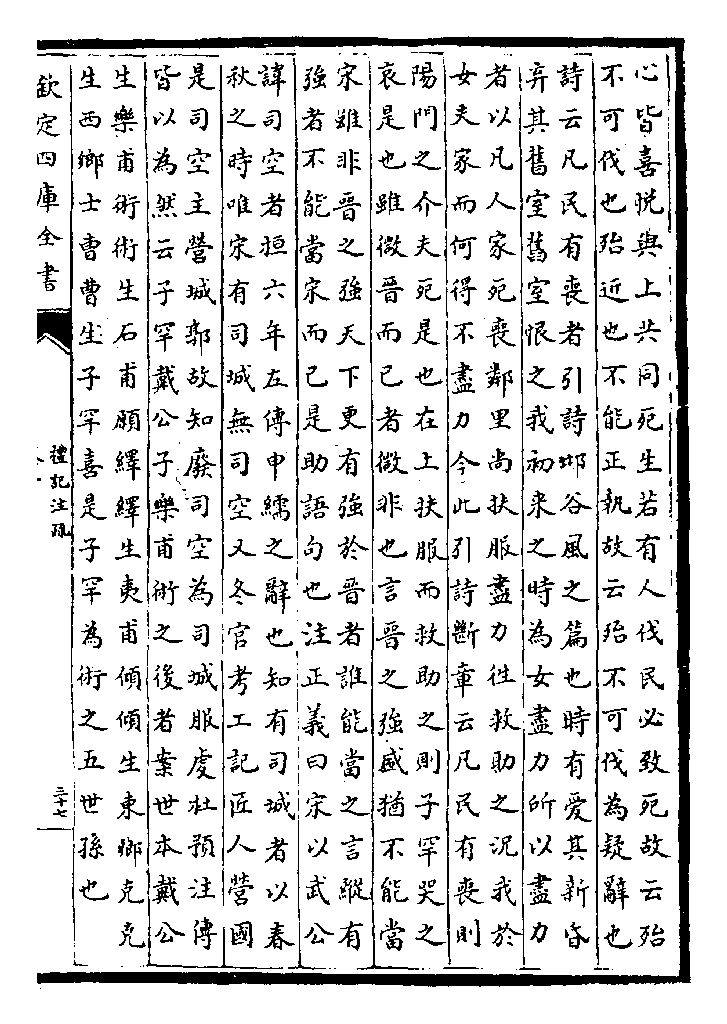 心皆喜悅與上共同死生若有人伐民必致死故云殆
不可伐也殆近也不能正執故云殆不可伐為疑辭也
詩云凡民有喪者引詩邶谷風之篇也時有愛其新昏
弃其舊室舊室恨之我初来之時為女盡力所以盡力
者以凡人家死喪鄰里尚扶服盡力往救助之况我於
女夫家而何得不盡力今此引詩斷章云凡民有喪則
陽門之介夫死是也在上扶服而救助之則子罕哭之
哀是也雖微晉而已者微非也言晉之強盛猶不能當
宋雖非晉之強天下更有強於晉者誰能當之言蹤有
強者不能當宋而已是助語句也注正義曰宋以武公
諱司空者桓六年左傳申繻之辭也知有司城者以春
秋之時唯宋有司城無司空又冬官考工記匠人營國
是司空主營城郭故知廢司空為司城服虔杜預注傳
皆以為然云子罕戴公子樂甫術之後者案世本戴公
生樂甫術術生石甫願繹繹生夷甫傾傾生東鄉克克
生西鄉士曹曹生子罕喜是子罕為術之五世孫也
欽定四庫全書
禮記注疏
三十七